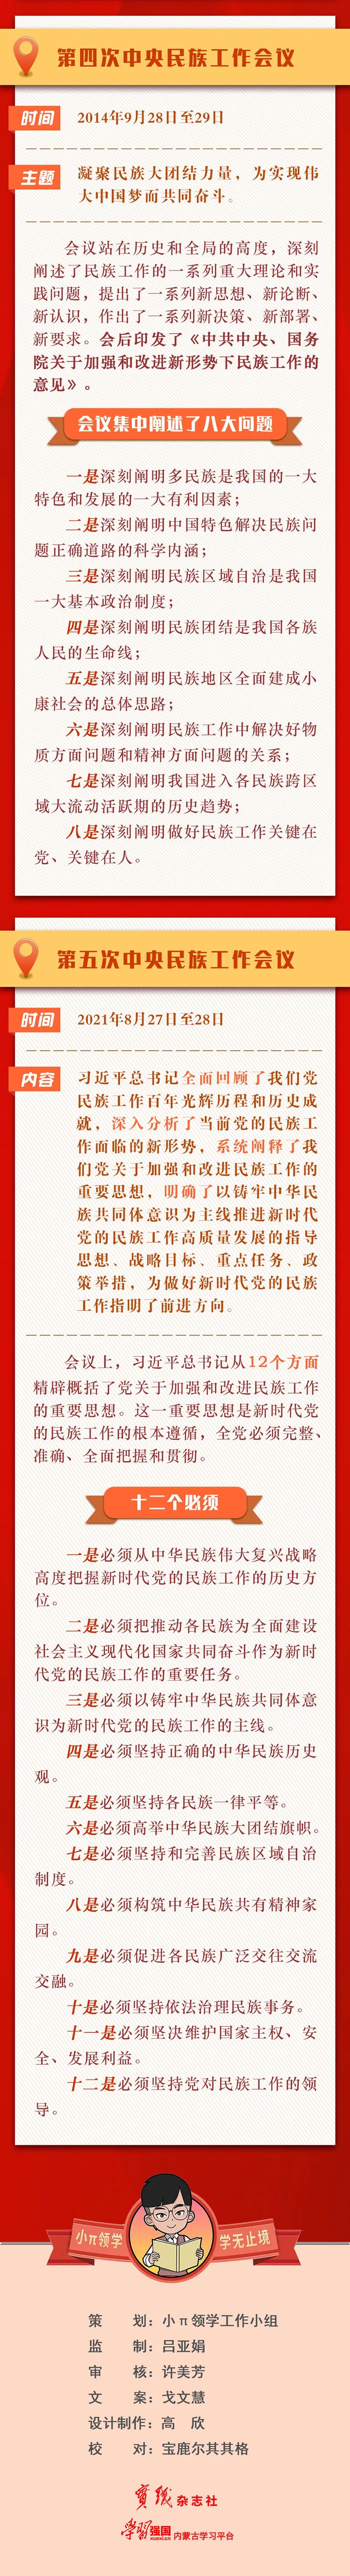 第四次中央民族工作会议
时间
2014年9月28日至29日
主题
凝聚民族大团结力量，为实现伟
大中国梦而共同奋斗。
会议站在历史和全局的高度，深刻
阐述了民族工作的一系列重大理论和实
践问题，提出了一系列新思想、新论断、
新认识，作出了一系列新决策、新部署、
新要求。会后印发了《中共中央、国务
院关于加强和改进新形势下民族工作的
意见》。
会议集中阐述了八大问题
一是深刻阐明多民族是我国的一大
特色和发展的一大有利因素；
二是深刻阐明中国特色解决民族问
题正确道路的科学内涵；
三是深刻阐明民族区域自治是我国
一大基本政治制度；
四是深刻阐明民族团结是我国各族
人民的生命线；
五是深刻阐明民族地区全面建成小
康社会的总体思路；
六是深刻阐明民族工作中解决好物
质方面问题和精神方面问题的关系；
七是深刻阐明我国进入各民族跨区
域大流动活跃期的历史趋势；
八是深刻阐明做好民族工作关键在
党、关键在人。
第五次中央民族工作会议
时间
2021年8月27日至28日
内容
习近平总书记全面回顾了我们党
民族工作百年光辉历程和历史成
就，深入分析了当前党的民族工
作面临的新形势，系统阐释了我
们党关于加强和改进民族工作的
重要思想，明确了以铸牢中华民
族共同体意识为主线推进新时代
党的民族工作高质量发展的指导
思想、战略目标、重点任务、政
策举措，为做好新时代党的民族
工作指明了前进方向。
会议上，习近平总书记从12个方面
精辟概括了党关于加强和改进民族工作
的重要思想。这一重要思想是新时代党
的民族工作的根本遵循，全党必须完整、
准确、全面把握和贯彻。
十二个必须
一是必须从中华民族伟大复兴战略
高度把握新时代党的民族工作的历史方
位。
二是必须把推动各民族为全面建设
社会主义现代化国家共同奋斗作为新时
代党的民族工作的重要任务。
三是必须以铸牢中华民族共同体意
识为新时代党的民族工作的主线。
四是必须坚持正确的中华民族历史
观。
五是必须坚持各民族一律平等。
六是必须高举中华民族大团结旗帜。
七是必须坚持和完善民族区域自治
制度。
八是必须构筑中华民族共有精神家
园。
九是必须促进各民族广泛交往交流
交融。
十是必须坚持依法治理民族事务。
十一是必须坚决维护国家主权、安
全、发展利益。
十二是必须坚持党对民族工作的领
导。
小π领学 学无止境
策 划：小π领学工作小组
监 制：吕亚娟
审 核：许美芳
文 案：戈文慧
设计制作：高 欣
校 对：宝鹿尔其其格
实践 杂志社
学习强国 xuexi.cn 内蒙古学习平台